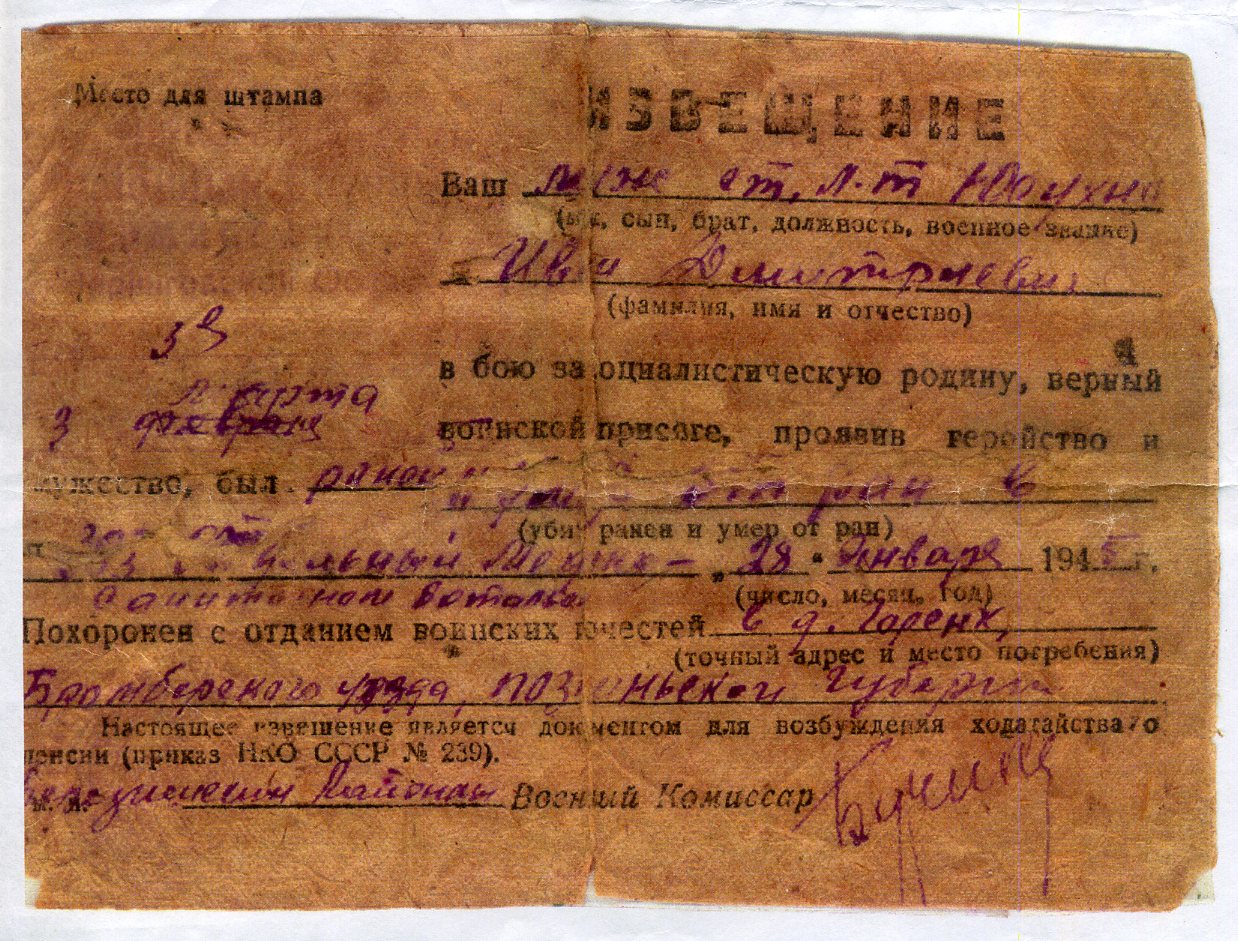 Место для штампа
ИЗВЕЩЕНИЕ
Ваш муж ст. л-т
(муж, сын, брат, должность, военное звание)
Иван Дмитриевич
(фамилия, имя и отчество)
в бою за социалистическую родину, верный
марта
3 февраля
воинской присяге, проявив геройство и
мужество, был ранен и умер от ран в
(убит, ранен и умер от ран)
"28" января 1945 г.
батальон
(число, месяц, год)
Похоронен с отданием воинских почестей в д.
(точный адрес и место погребения)
Бромбергского уезда, познаньской губернии
Настоящее извещение является документом для возбуждения ходатайства о
пенсии (приказ НКО СССР № 239).
М. П. Военный Комиссар